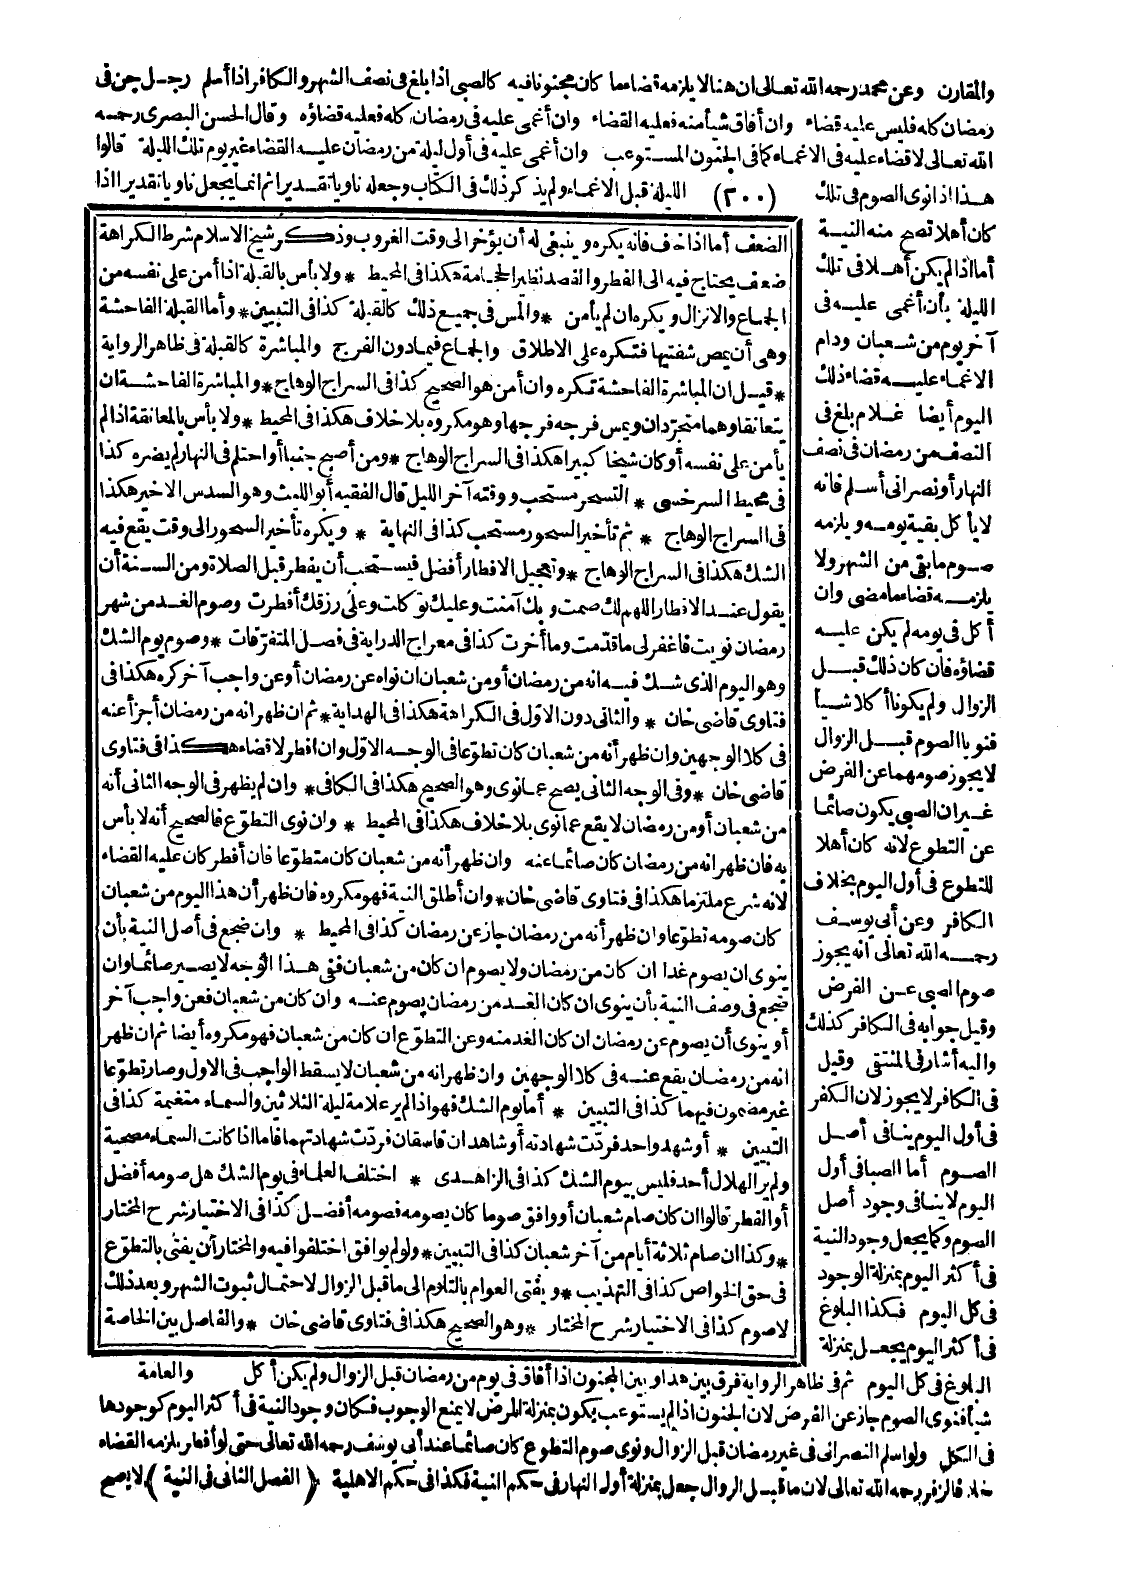 والمقارن وعن محمد رحمه الله تعالى ان هنا لا يلزمه قضاء ما كان مجنونا فيه كالصبي اذا بلغ فى نصف الشهر والكافر اذا أسلم رجل جن فى
رمضان كله فليس عليه قضاء وان أفاق شيأ منه فعليه القضاء وان أغمى عليه فى رمضان كله فعليه قضاؤه وقال الحسن البصرى رحمه
الله تعالى لا قضاء عليه فى الاغماء كما فى الجنون المستوعب وان أغمى عليه فى أول ليلة من رمضان عليه القضاء غير يوم تلك الليلة قالوا
هذا اذا نوى الصوم فى تلك (٢٠٠) الليلة قبل الاغماء ولم يذكر ذلك فى الكتاب وجعله ناويا تقديرا ثم انما يجعل ناويا تقديرا اذا
كان أهلا تصح منه النية
أما اذا لم يكن أهلا فى تلك
الليلة بأن أغمى عليه فى
آخر يوم من شعبان ودام
الاغماء عليه قضاء ذلك
اليوم أيضا غلام بلغ فى
النصف من رمضان فى نصف
النهار أو نصرانى أسلم فانه
لا يأكل بقية يومه ويلزمه
صوم ما بقى من الشهر ولا
يلزمه قضاء ما مضى وان
أكل فى يومه لم يكن عليه
قضاؤه فان كان ذلك قبل
الزوال ولم يكونا أكلا شيأ
فنويا الصوم قبل الزوال
لا يجوز صومهما عن الفرض
غير ان الصبى يكون صائما
عن التطوع لانه كان أهلا
للتطوع فى أول اليوم بخلاف
الكافر وعن أبى يوسف
رحمه الله تعالى انه يجوز
صوم الصبى عن الفرض
وقيل جوابه فى الكافر كذلك
واليه أشار فى المنتقى وقيل
فى الكافر لا يجوز لان الكفر
فى أول اليوم ينافى أصل
الصوم أما الصبا فى أول
اليوم لا ينافى وجود أصل
الصوم وكما يجعل وجود النية
فى أكثر اليوم بمنزلة الوجود
فى كل اليوم فكذا البلوغ
فى أكثر اليوم يجعل بمنزلة
الضعف أما اذا خاف فانه يكره وينبغى له أن يؤخر الى وقت الغروب وذكر شيخ الاسلام شرط الكراهة
ضعف يحتاج فيه الى الفطر والفصد نظير الحجامة هكذا فى المحيط * ولا بأس بالقبلة اذا أمن على نفسه من
الجماع والانزال ويكره ان لم يأمن * والمس فى جميع ذلك كالقبلة كذا فى التبيين * وأما القبلة الفاحشة
وهى أن يمص شفتيها فتكره على الاطلاق والجماع فيما دون الفرج والمباشرة كالقبلة فى ظاهر الرواية
* قيل ان المباشرة الفاحشة تكره وان أمن هو الصحيح كذا فى السراج الوهاج * والمباشرة الفاحشة ان
يتعانقا وهما متجردان ويمس فرجه فرجها وهو مكروه بلا خلاف هكذا فى المحيط * ولا بأس بالمعانقة اذا لم
يأمن على نفسه أو كان شيخا كبيرا هكذا فى السراج الوهاج * ومن أصبح جنبا أو احتلم فى النهار لم يضره كذا
فى محيط السرخسى * التسحر مستحب ووقته آخر الليل قال الفقيه أبو الليث وهو السدس الاخير هكذا
فى السراج الوهاج * ثم تأخير السحور مستحب كذا فى النهاية * ويكره تأخير السحور الى وقت يقع فيه
الشك هكذا فى السراج الوهاج * وتعجيل الافطار أفضل فيستحب أن يفطر قبل الصلاة ومن السنة أن
يقول عند الافطار اللهم لك صمت وبك آمنت وعليك توكلت وعلى رزقك أفطرت وصوم الغد من شهر
رمضان نويت فاغفر لى ما قدمت وما أخرت كذا فى معراج الدراية فى فصل المتفرقات * وصوم يوم الشك
وهو اليوم الذى شك فيه انه من رمضان أو من شعبان ان نواه عن رمضان أو عن واجب آخر كره هكذا فى
فتاوى قاضى خان * والثانى دون الاول فى الكراهة هكذا فى الهداية * ثم ان ظهر انه من رمضان أجزأ عنه
فى كلا الوجهين وان ظهر أنه من شعبان كان تطوعا فى الوجه الاول وان افطر لا قضاء هكذا فى فتاوى
قاضى خان * وفى الوجه الثانى يصح عما نوى وهو الصحيح هكذا فى الكافى * وان لم يظهر فى الوجه الثانى أنه
من شعبان أو من رمضان لا يقع عما نوى بلا خلاف هكذا فى المحيط * وان نوى التطوع فالصحيح أنه لا بأس
به فان ظهر انه من رمضان كان صائما عنه وان ظهر أنه من شعبان كان متطوعا فان أفطر كان عليه القضاء
لانه شرع ملتزما هكذا فى فتاوى قاضى خان * وان أطلق النية فهو مكروه فان ظهر أن هذا اليوم من شعبان
كان صومه تطوعا وان ظهر أنه من رمضان جاز عن رمضان كذا فى المحيط * وان ضجع فى أصل النية بأن
ينوى ان يصوم غدا ان كان من رمضان ولا يصوم ان كان من شعبان ففى هذا الوجه لا يصير صائما وان
ضجع فى وصف النية بأن ينوى ان كان الغد من رمضان يصوم عنه وان كان من شعبان فعن واجب آخر
أو ينوى أن يصوم عن رمضان ان كان الغد منه وعن التطوع ان كان من شعبان فهو مكروه أيضا ثم ان ظهر
انه من رمضان يقع عنه فى كلا الوجهين وان ظهر انه من شعبان لا يسقط الواجب فى الاول وصار تطوعا
غير مضمون فيهما كذا فى التبيين * أما يوم الشك فهو اذا لم ير علامة ليلة الثلاثين والسماء متغيمة كذا فى
التبيين * أو شهد واحد فردت شهادته أو شاهدان فاسقان فردت شهادتهما فاما اذا كانت السماء مصحية
ولم ير الهلال أحد فليس بيوم الشك كذا فى الزاهدى * اختلف العلماء فى يوم الشك هل صومه أفضل
أو الفطر قالوا ان كان صام شعبان أو وافق صوما كان يصومه فصومه أفضل كذا فى الاختيار شرح المختار
* وكذا ان صام ثلاثة أيام من آخر شعبان كذا فى التبيين * ولو لم يوافق اختلفوا فيه والمختار أن يفتى بالتطوع
فى حق الخواص كذا فى التهذيب * ويفتى العوام بالتلازم الى ما قبل الزوال لاحتمال ثبوت الشهر وبعد ذلك
لا صوم كذا فى الاختيار شرح المختار * وهو الصحيح هكذا فى فتاوى قاضى خان * والفاصل بين الخاصة
والعامة
البلوغ فى كل اليوم ثم فى ظاهر الرواية فرق بين هذا وبين المجنون اذا أفاق فى يوم من رمضان قبل الزوال ولم يكن أكل
شيأ فنوى الصوم جاز عن الفرض لان الجنون اذا لم يستوعب يكون بمنزلة المرض لا يمنع الوجوب فكان وجود النية فى أكثر اليوم كوجودها
فى الكل ولو أسلم النصرانى فى غير رمضان قبل الزوال ونوى صوم التطوع كان صائما عند أبى يوسف رحمه الله تعالى حتى لو أفطر يلزمه القضاء
خلافا لزفر رحمه الله تعالى لان ما قبل الزوال جعل بمنزلة أول النهار فى حكم النية فكذا فى حكم الاهلية (الفصل الثانى فى النية) لا يصح